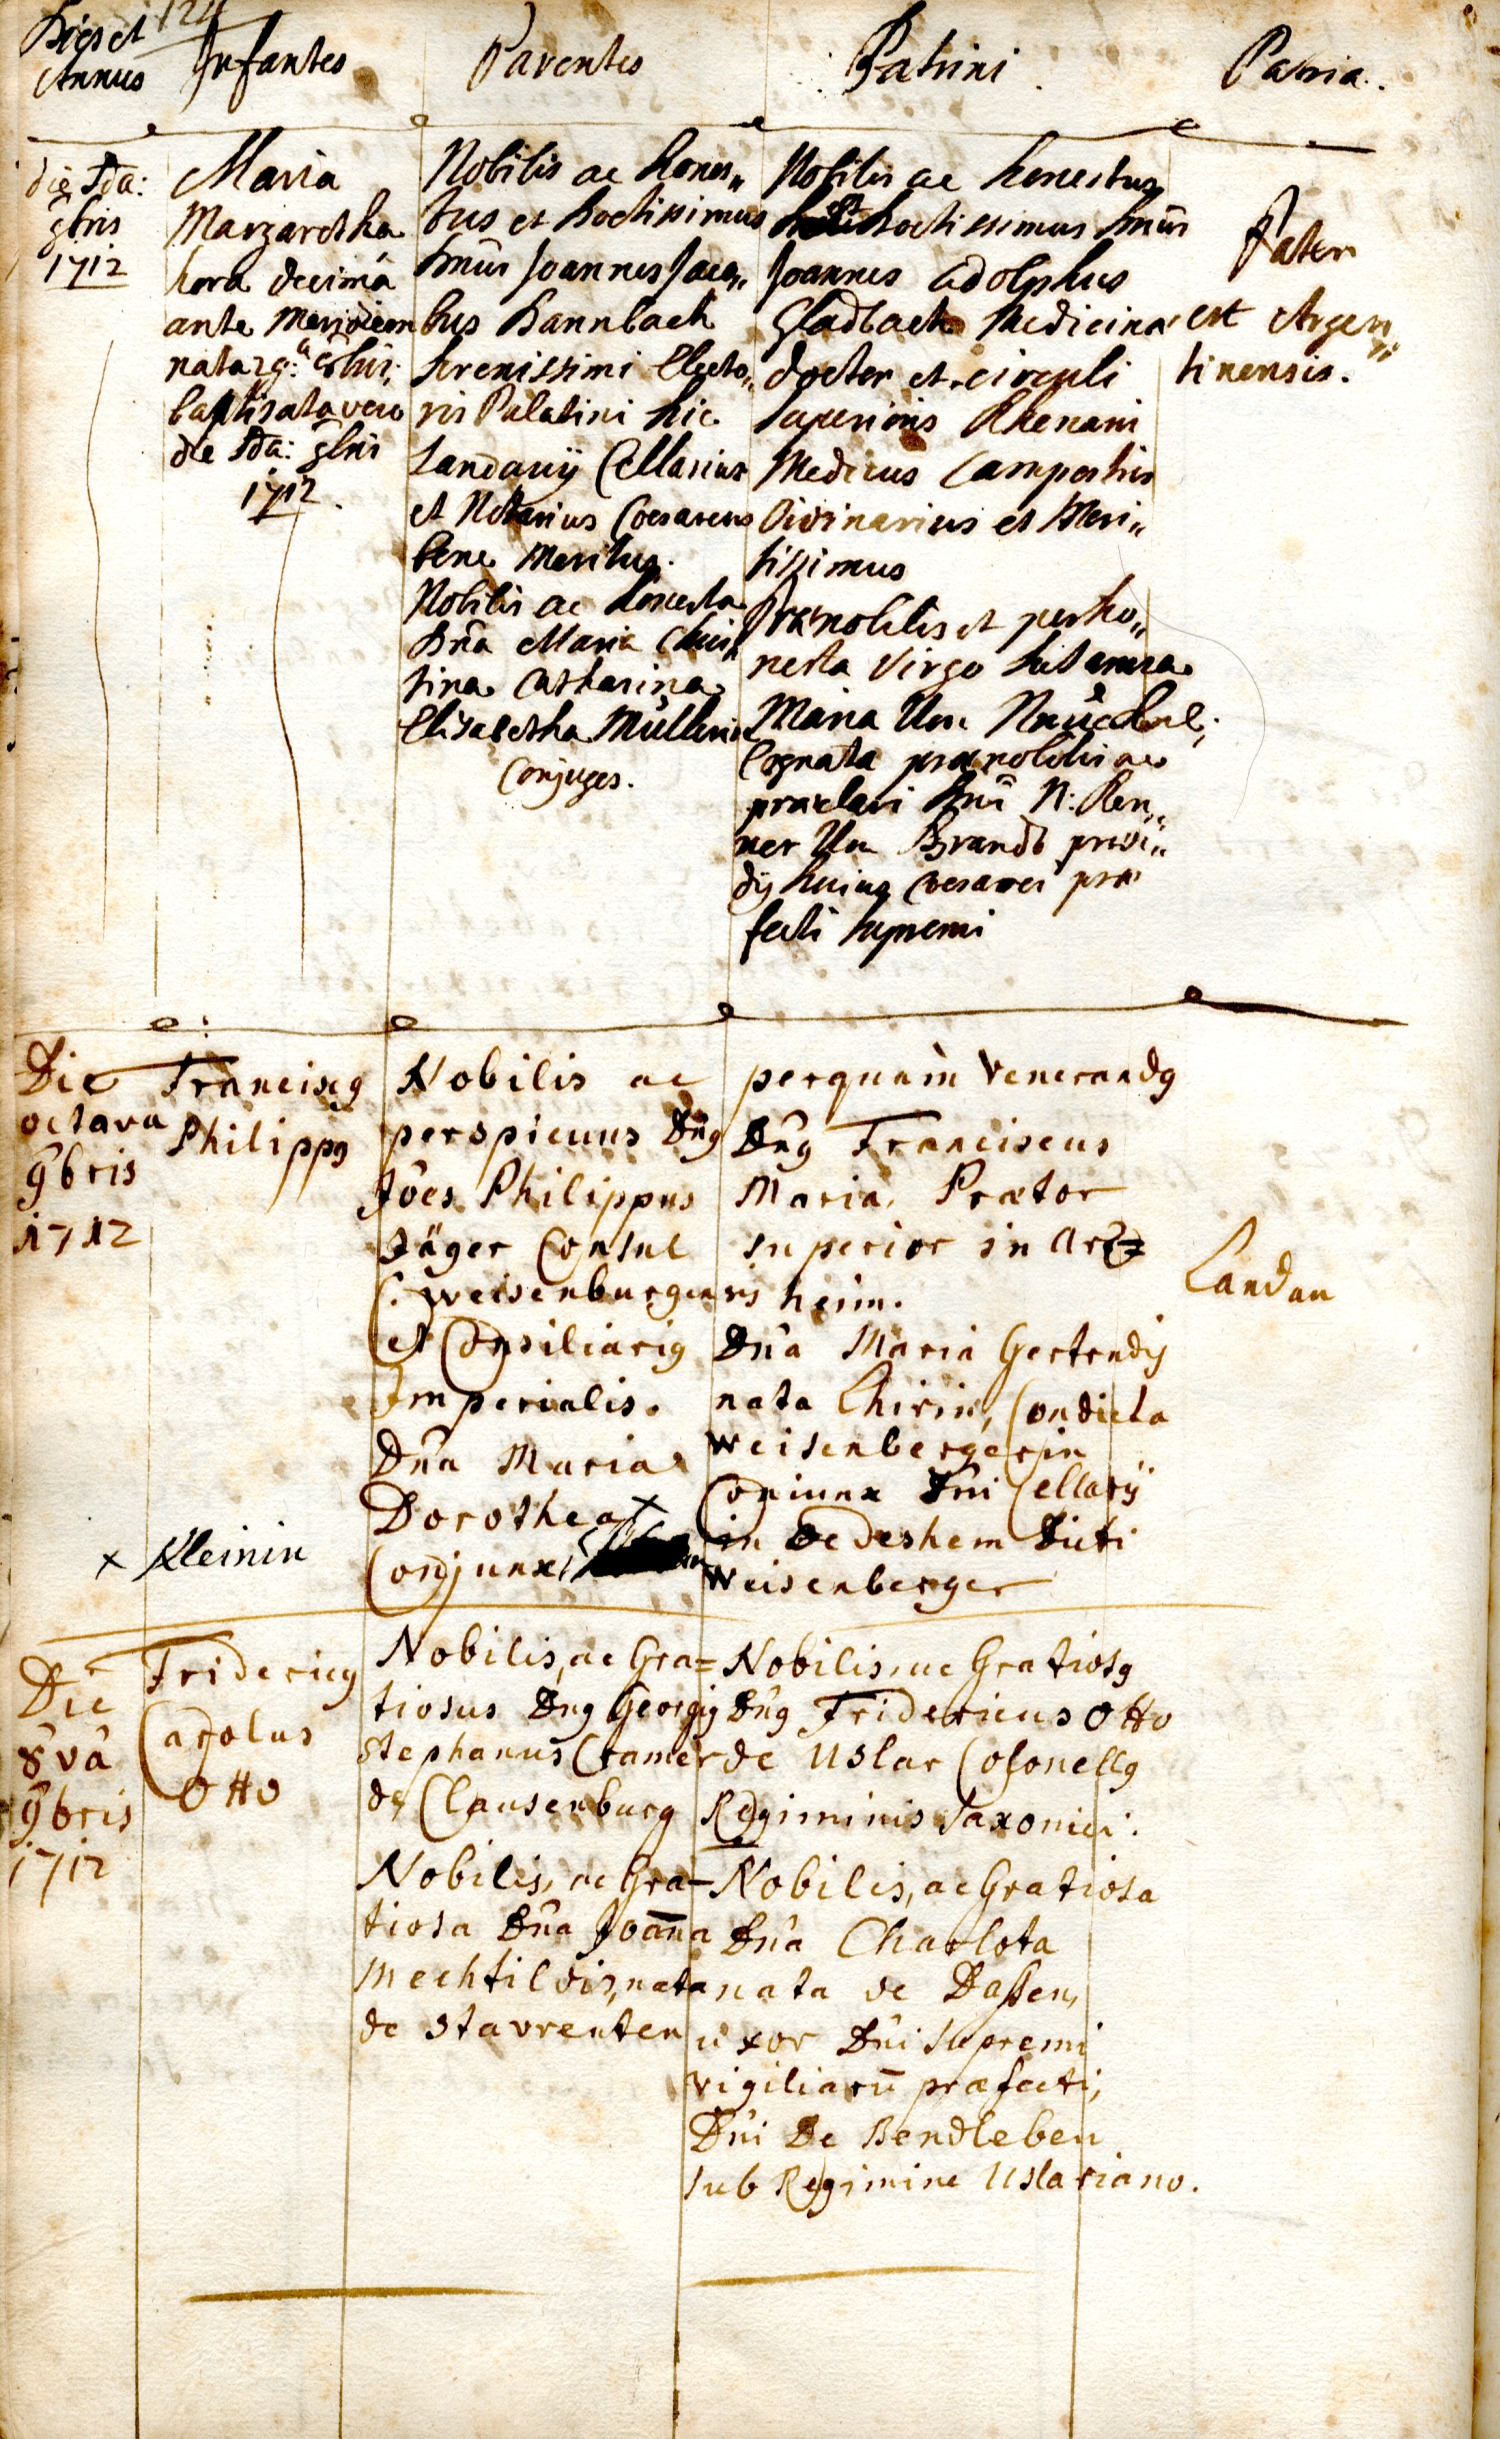 124
Dies et
Annus
Infantes
Parentes
Patrini
Patria.
die 2da:
9bris
1712
Maria
Margaretha
hora decima
ante Meridiem
nata 29: 8bris
baptisata vero
die 2da: 9bris
1712.
Nobilis ac hones„
tus et Doctissimus
Dnus Joannes Jaco„
bus Dannbach
Serenissimi Electo„
ris Palatini hic
Landavij Cellarius
et Notarius Cæsareus
bene Meritus.
Nobilis ac honesta
Dna Maria Chris„
tina Catharina
Elisabetha Müllerin
Conjuges.
Nobilis ac honestus
et Doctissimus Dnus
Joannes Adolphus
Gladbach Medicinæ
doctor et circuli
Superioris Rhenani
Medicus Campestris
Ordinarius et Meri„
tissimus
Prænobilis et perho„
nesta Virgo
Maria Von
Cognata prænobilis ac
præclari Dni N: Ren„
ner Von Brandt præsi„
dij huius Cæsarei præ
fecti supremi
Pater
est Argen„
tinensis.
Die
octava
9bris
1712
Franciscq
Philippq
Nobilis ac
perspicuus Dnq
Jôes Philippus
Jäger Consul
C. Weisenburgensis
et Consiliariq
Imperialis.
Dna Maria
Dorothea x
Conjunx,
x Kleinin
perquam Venerandq
Dnq Franciscus
Maria, Prætor
superior in Artz
heim.
Dna Maria Gertrudis
nata Chirin, Condicta
Weisenbergerin
Coniunx Dni Cellarij
in Oedeshem Dicti
Weisenberger
Landau
Die
8vâ
9bris
1712
Fridericq
Carolus
Otto
Nobilis, ac Gra=
tiosus Dnq Georgiq
Stephanus Cramer
de Clausenburg
Nobilis, ac Gra-
tiosa Dna Joanna
Mechtildis, nata
de Stavrenten
Nobilis, ac Gratiosq
Dnq Fridericus Otto
de Uslar Colonellq
Regiminis Saxonici.
Nobilis, ac Gratiosa
Dna Charlota
nata de Dassen,
uxor Dni Supremi
vigiliarū præfecti,
Dni De Bendleben
sub Regimine Uslariano.